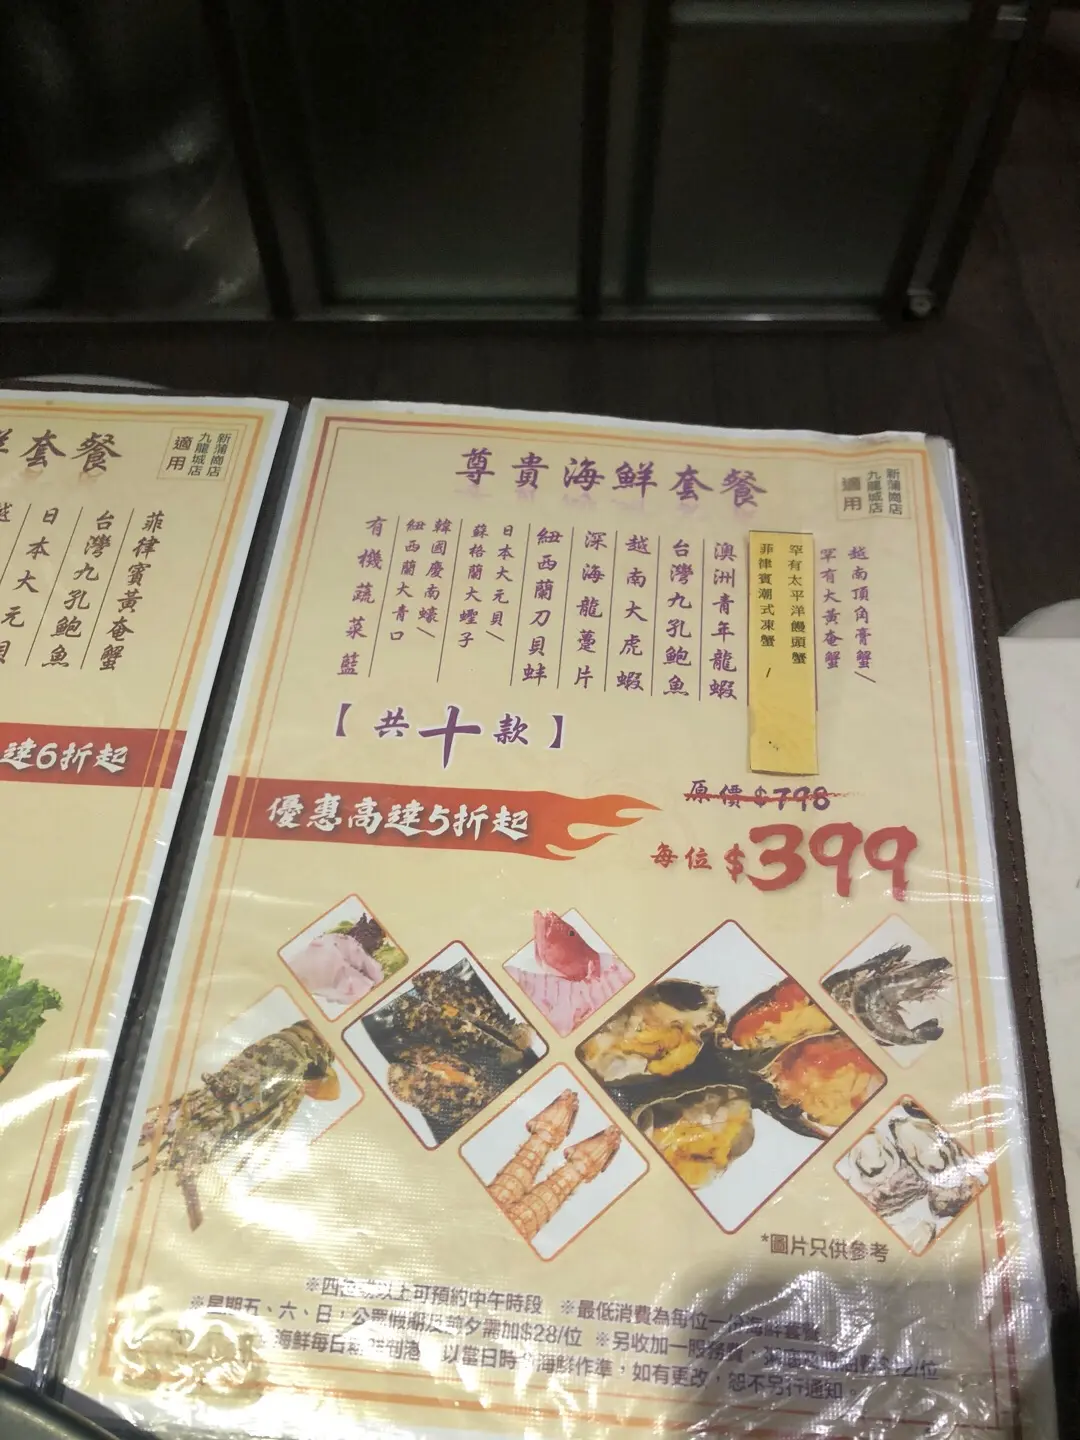 鮮套餐
新蒲崗店
九龍城店
適用
菲律賓黃奄蟹
台灣九孔鮑魚
日本大元貝
越
達6折起
尊貴海鮮套餐
新蒲崗店
九龍城店
適用
越南頂角膏蟹/
罕有大黃奄蟹
罕有太平洋饅頭蟹
菲律賓潮式凍蟹/
澳洲青年龍蝦
台灣九孔鮑魚
越南大虎蝦
深海龍躉片
紐西蘭刀貝蚌
日本大元貝/
蘇格蘭大蟶子
韓國慶南蠔/
紐西蘭大青口
有機蔬菜籃
【共十款】
原價$798
優惠高達5折起
每位$399
*圖片只供參考
※四位或以上可預約中午時段 ※最低消費為每位一份海鮮套餐
※星期五、六、日,公眾假期及前夕需加$28/位 ※另收加一服務費,
海鮮每日新鮮到港 以當日時令海鮮作準,如有更改,恕不另行通知。